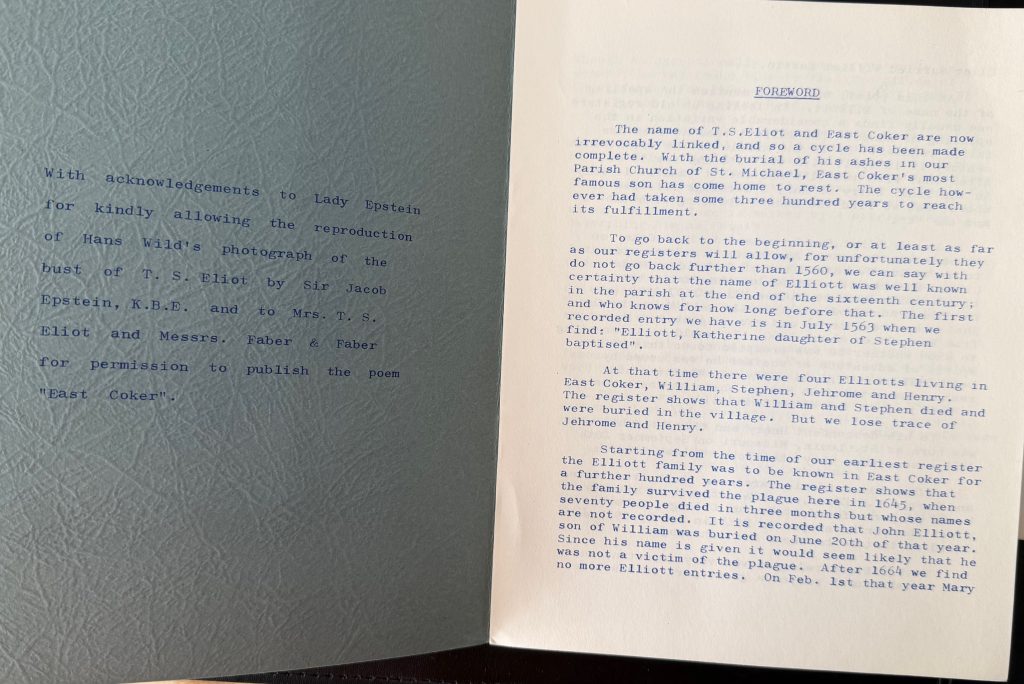 With acknowledgements to Lady Epstein
for kindly allowing the reproduction
of Hans Wild's photograph of the
bust of T. S. Eliot by Sir Jacob
Epstein, K.B.E. and to Mrs. T. S.
Eliot and Messrs. Faber & Faber
for permission to publish the poem
"East Coker".
FOREWORD
The name of T.S.Eliot and East Coker are now
irrevocably linked, and so a cycle has been made
complete. With the burial of his ashes in our
Parish Church of St. Michael, East Coker's most
famous son has come home to rest. The cycle how-
ever had taken some three hundred years to reach
its fulfillment.
To go back to the beginning, or at least as far
as our registers will allow, for unfortunately they
do not go back further than 1560, we can say with
certainty that the name of Elliott was well known
in the parish at the end of the sixteenth century;
and who knows for how long before that. The first
recorded entry we have is in July 1563 when we
find: "Elliott, Katherine daughter of Stephen
baptised".
At that time there were four Elliotts living in
East Coker, William, Stephen, Jehrome and Henry.
The register shows that William and Stephen died and
were buried in the village. But we lose trace of
Jehrome and Henry.
Starting from the time of our earliest register
the Elliott family was to be known in East Coker for
a further hundred years. The register shows that
the family survived the plague here in 1645, when
seventy people died in three months but whose names
are not recorded. It is recorded that John Elliott,
son of William was buried on June 20th of that year.
Since his name is given it would seem likely that he
was not a victim of the plague. After 1664 we find
no more Elliott entries. On Feb. 1st that year Mary